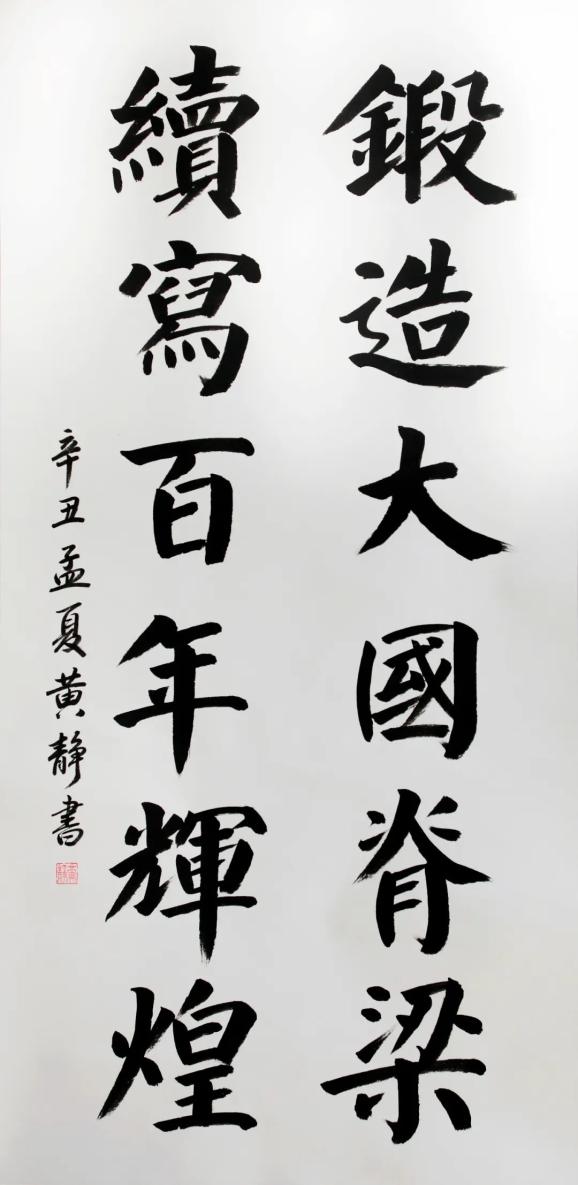 鍛造大國脊梁
續寫百年輝煌
辛丑孟夏黄静書